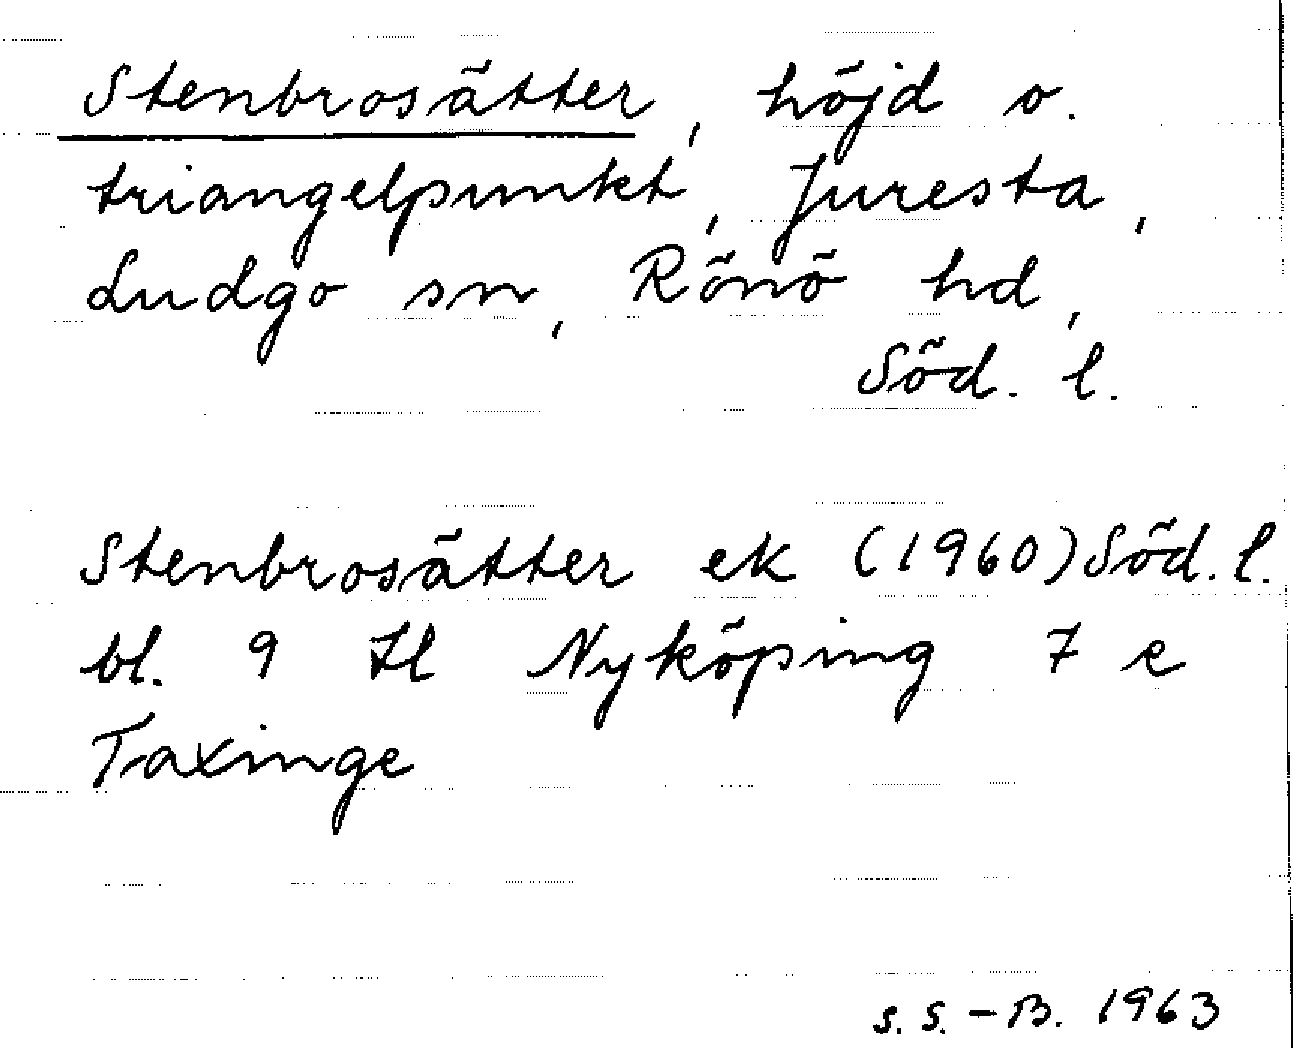 Stenbrosätter, höjd o.
triangelpunkt, Juresta,
Ludgo sn, Rönö hd,
Söd. l.
Stenbrosätter ek (1960) Söd. l.
bl. 9 H Nyköping 7 e
Taxinge
S. S.-B. 1963